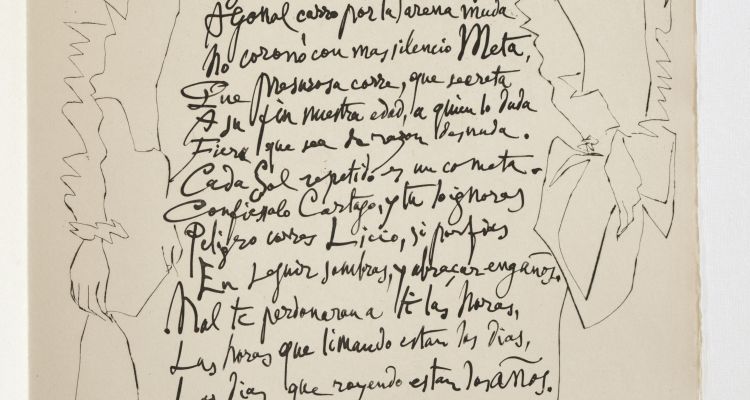 Agonal carro por la arena muda
No coronó con mas silencio Meta,
Que presurosa corre, que secreta
A su fin nuestra edad, a quien lo duda
Fiera que sea de razon desnuda.
Cada Sol repetido es un cometa.
Confiessalo Cartago, y tu lo ignoras
Peligro corres Licio, si porfias
En seguir sombras, y abraçar engaños.
Mal te perdonaran a ti las horas,
Las horas que limando estan los dias,
Los dias que royendo estan los años.